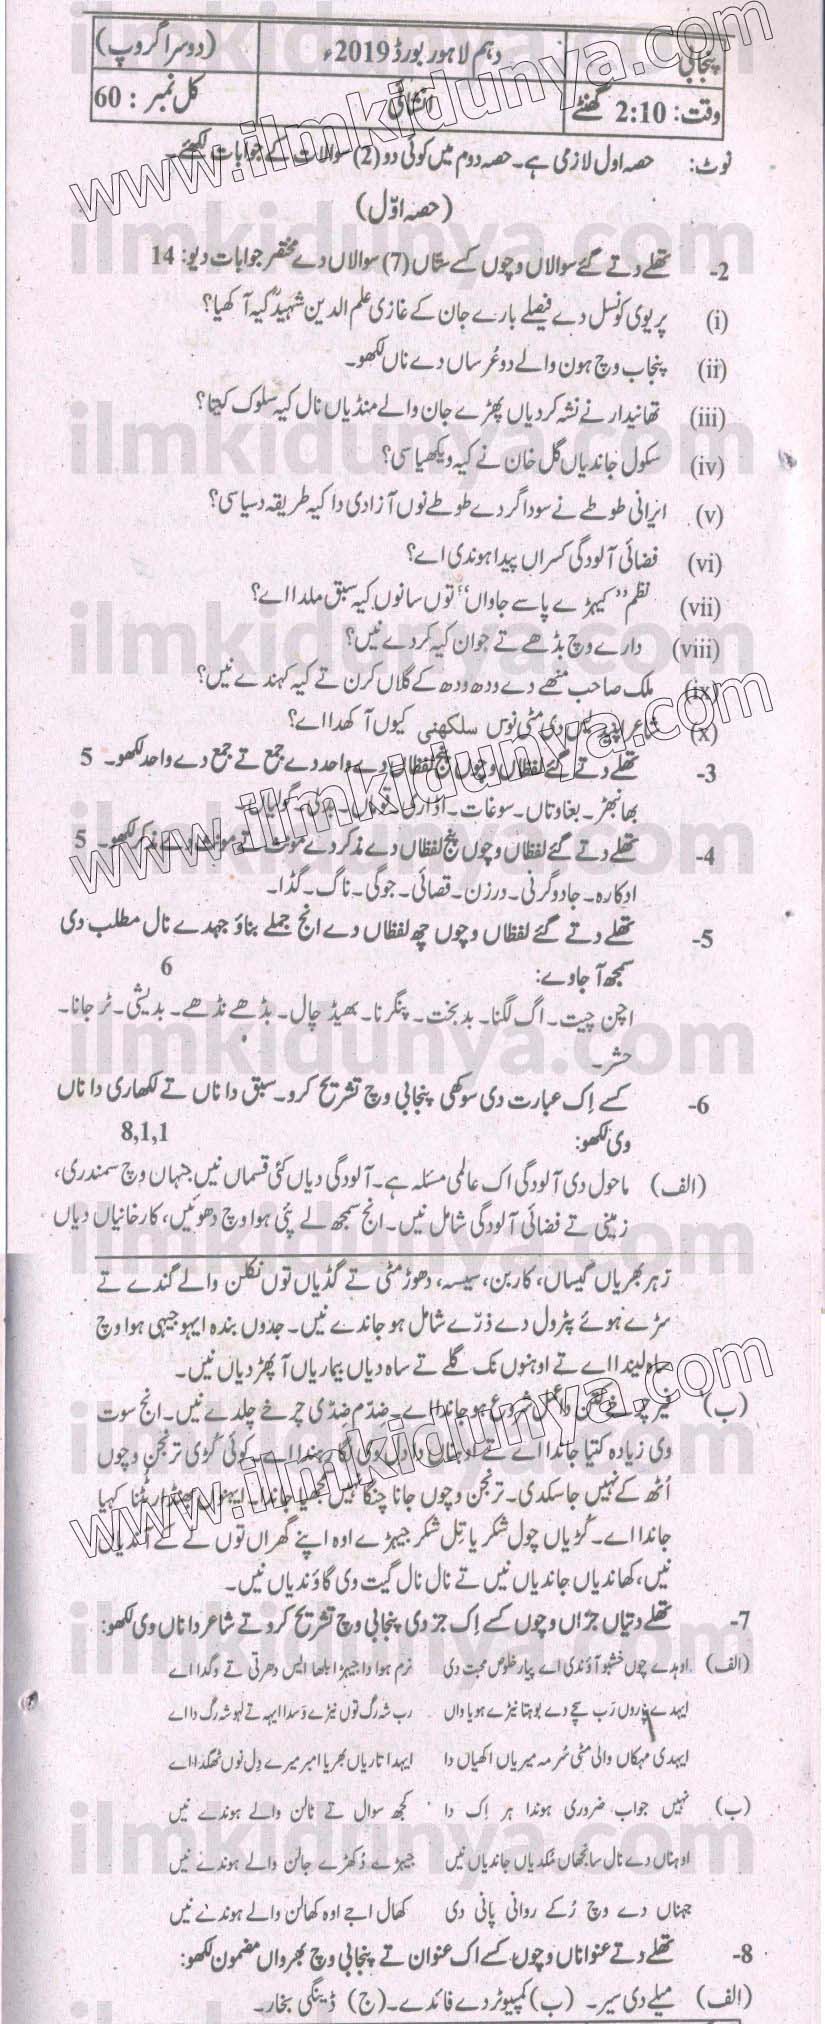 پنجابی دہم لاہور بورڈ 2019ء (دوسرا گروپ)
وقت: 2:10 گھنٹے انشائی کل نمبر : 60
نوٹ: حصہ اول لازمی ہے۔ حصہ دوم میں کوئی دو (2) سوالات کے جوابات لکھئے۔
(حصہ اوّل)
2- تھلے دتے گئے سوالاں وچوں کسے ستاں (7) سوالاں دے مختصر جوابات دیو: 14
(i) پریوی کونسل دے فیصلے بارے جان کے غازی علم الدین شہیدؒ کیہ آکھیا؟
(ii) پنجاب وچ ہون والے دو عُرساں دے ناں لکھو۔
(iii) تھانیدار نے نشہ کردیاں پھڑے جان والے منڈیاں نال کیہ سلوک کیتا؟
(iv) سکول جاندیاں گل خان نے کیہ ویکھیا سی؟
(v) ایرانی طوطے نے سوداگر دے طوطے نوں آزادی دا کیہ طریقہ دسیا سی؟
(vi) فضائی آلودگی کسراں پیدا ہوندی اے؟
(vii) نظم ”کیہڑے پاسے جاواں“ توں سانوں کیہ سبق ملدا اے؟
(viii) دارے وچ بڈھے تے جوان کیہ کردے نیں؟
(ix) ملک صاحب منھے دے ودھ ودھ کے گلاں کرن تے کیہ کہندے نیں؟
(x) شاعر اپنے دیس دی مٹی نوں سلکھنی کیوں آکھدا اے؟
3- تھلے دتے گئے لفظاں وچوں پنج لفظاں دے واحد دے جمع تے جمع دے واحد لکھو۔ 5
بھانبھڑ۔ بغاوتاں۔ سوغات۔ اڈاری۔ گولیاں۔
4- تھلے دتے گئے لفظاں وچوں پنج لفظاں دے مذکر دے مونث تے مونث دے مذکر لکھو۔ 5
ادکارہ۔ جادوگرنی۔ درزن۔ قصائی۔ جوگی۔ ناگ۔ گڈا۔
5- تھلے دتے گئے لفظاں وچوں چھ لفظاں دے انج جملے بناؤ جہدے نال مطلب دی
سمجھ آجاوے: 6
اچن چیت۔ اگ لگنا۔ بدبخت۔ پنگرنا۔ بھیڈ چال۔ بڈھے نڈھے۔ بدیشی۔ ٹر جانا۔
حشر۔
6- کسے اِک عبارت دی سوکھی پنجابی وچ تشریح کرو۔ سبق دا ناں تے لکھاری دا ناں
وی لکھو: 8,1,1
(الف) ماحول دی آلودگی اک عالمی مسئلہ ہے۔ آلودگی دیاں کئی قسماں نیں جنہاں وچ سمندری،
زمینی تے فضائی آلودگی شامل نیں۔ انج سمجھ لے پئی ہوا وچ دھوئیں، کارخانیاں دیاں
زہر بھریاں گیساں، کاربن، سیسہ، دھوڑ مٹی تے گڈیاں توں نکلن والے گندے تے
سڑے ہوئے پٹرول دے ذرّے شامل ہو جاندے نیں۔ جدوں بندہ ایہو جیہی ہوا وچ
ساہ لیندا اے تے اوہنوں نک گلے تے ساہ دیاں بیماریاں آ پھڑدیاں نیں۔
(ب) فیر چرخے کتن دا عمل شروع ہو جاندا اے۔ ضِدّم ضِدّی چرخے چلدے نیں۔ انج سوت
وی زیادہ کتیا جاندا اے تے اوہناں دا دل وی لگا رہندا اے۔ کوئی کڑی ترنجن وچوں
اُٹھ کے نہیں جا سکدی۔ ترنجن وچوں جانا چنگا نہیں سمجھیا جاندا۔ ایہنوں پُٹنا کہیا
جاندا اے۔ کُڑیاں چول شکر یا تِل شکر جیہڑے اوہ اپنے گھراں توں لے کے آندیاں
نیں، کھاندیاں جاندیاں نیں تے نال نال گیت وی گاؤندیاں نیں۔
7- تھلے دتیاں جزاں وچوں کسے اِک جز دی پنجابی وچ تشریح کرو تے شاعر دا ناں وی لکھو:
(الف) اوہدے چوں خشبو آؤندی اے پیار خلوص محبت دی نرم ہوا دا جیہڑا بلھا ایس دھرتی تے وگدا اے
ایہدے پاروں رَب سچے دے بوہتا نیڑے ہویا واں رب شہ رگ توں نیڑے وَسدا ایہہ تے لہو شہ رگ دا اے
ایہدی مہکاں والی مٹی سُرمہ میریاں اکھیاں دا ایہدا تاریاں بھریا امبر میرے دِل نوں ٹھگدا اے
(ب) نہیں جواب ضروری ہوندا ہر اِک دا کجھ سوال تے ٹالن والے ہوندے نیں
اوہناں دے نال سانجھاں مُکدیاں جاندیاں نیں جیہڑے دُکھڑے جالن والے ہوندے نیں
جنہاں دے وچ رُکے روانی پانی دی کھال اجے اوہ کھالن والے ہوندے نیں
8- تھلے دتے عنواناں وچوں کسے اک عنوان تے پنجابی وچ بھرواں مضمون لکھو:
(الف) میلے دی سیر۔ (ب) کمپیوٹر دے فائدے۔ (ج) ڈینگی بخار۔
www.ilmkidunya.com
ilmkidunya.com